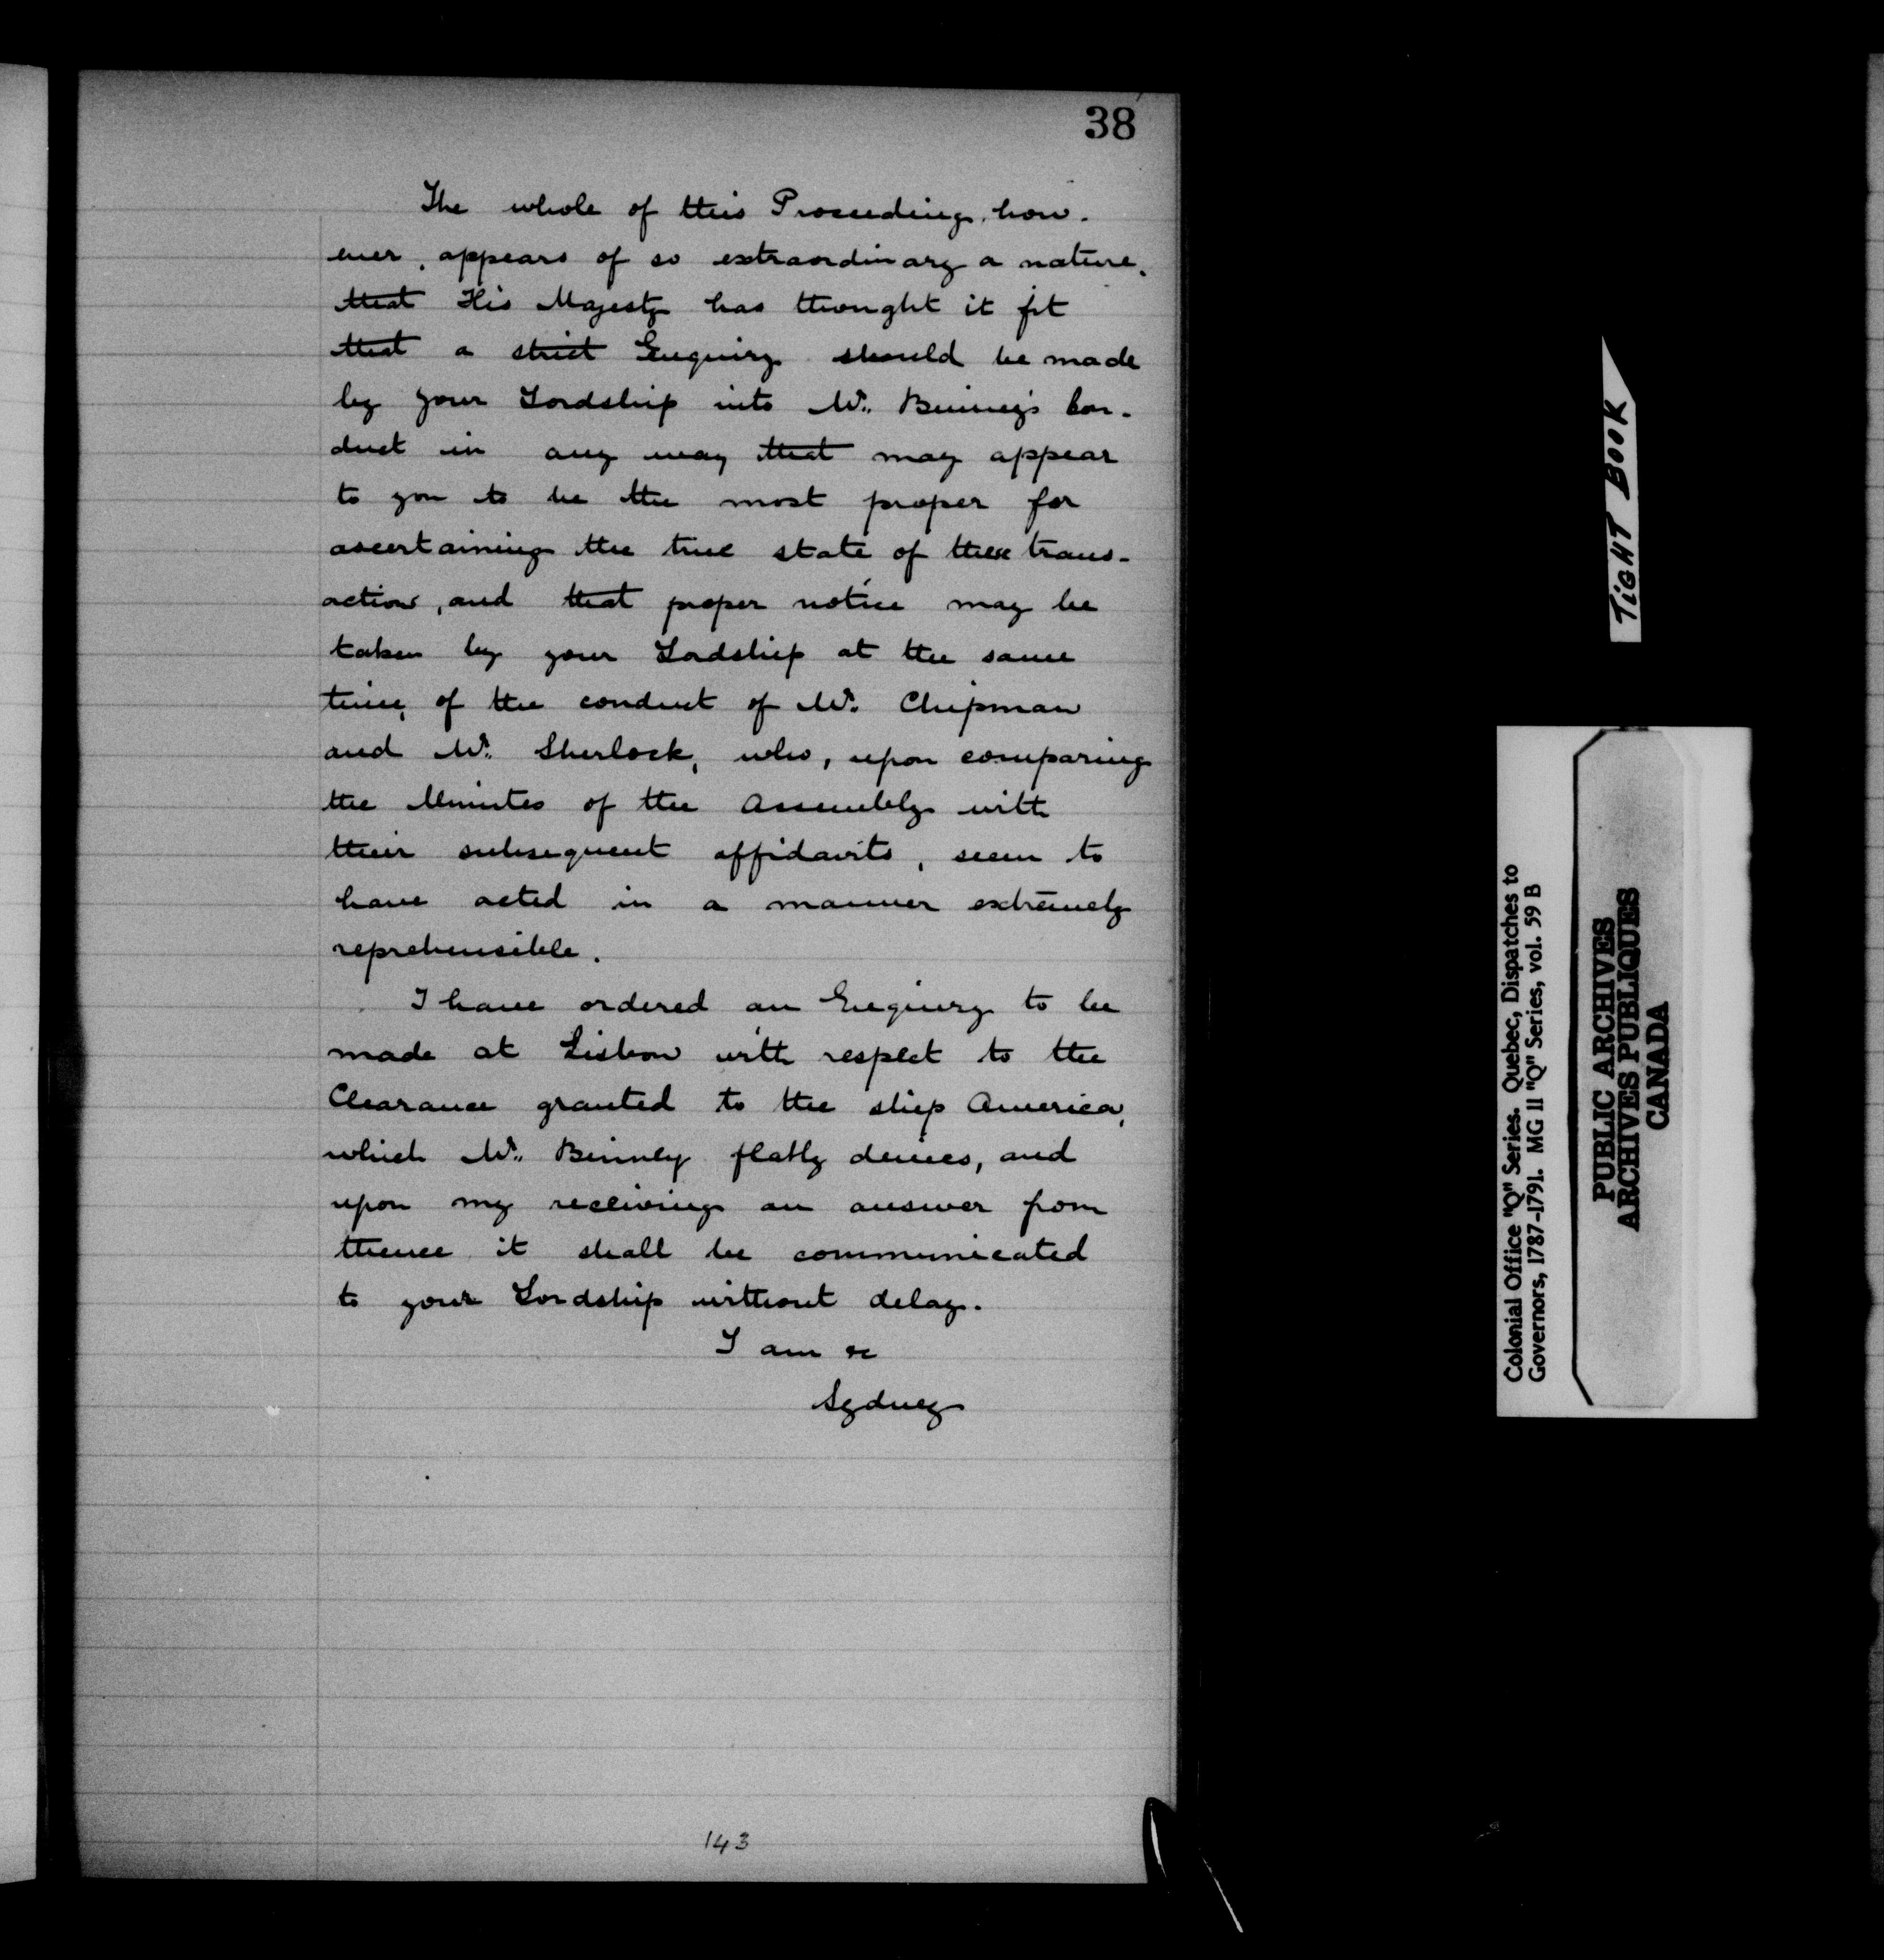 38
The whole of this Proceeding, how-
ever, appears of so extraordinary a nature,
that His Majesty has thought it fit
that a strict Enquiry should be made
by your Lordship into Mr. Binney's Con-
duct in any way that may appear
to you to be the most proper for
ascertaining the true state of these trans-
actions, and that proper notice may be
taken by your Lordship at the same
time, of the conduct of Mr. Chipman
and Mr. Sherlock, who, upon comparing
the Minutes of the Assembly with
their subsequent affidavits, seem to
have acted in a manner extremely
reprehensible.
I have ordered an Enquiry to be
made at Lisbon with respect to the
Clearance granted to the ship America,
which Mr. Binney flatly denies, and
upon my receiving an answer from
thence it shall be communicated
to your Lordship without delay.
I am &c
Sydney
143
TIGHT BOOK
Colonial Office "Q" Series. Quebec, Dispatches to
Governors, 1787-1791. MG 11 "Q" Series, vol. 59 B
PUBLIC ARCHIVES
ARCHIVES PUBLIQUES
CANADA